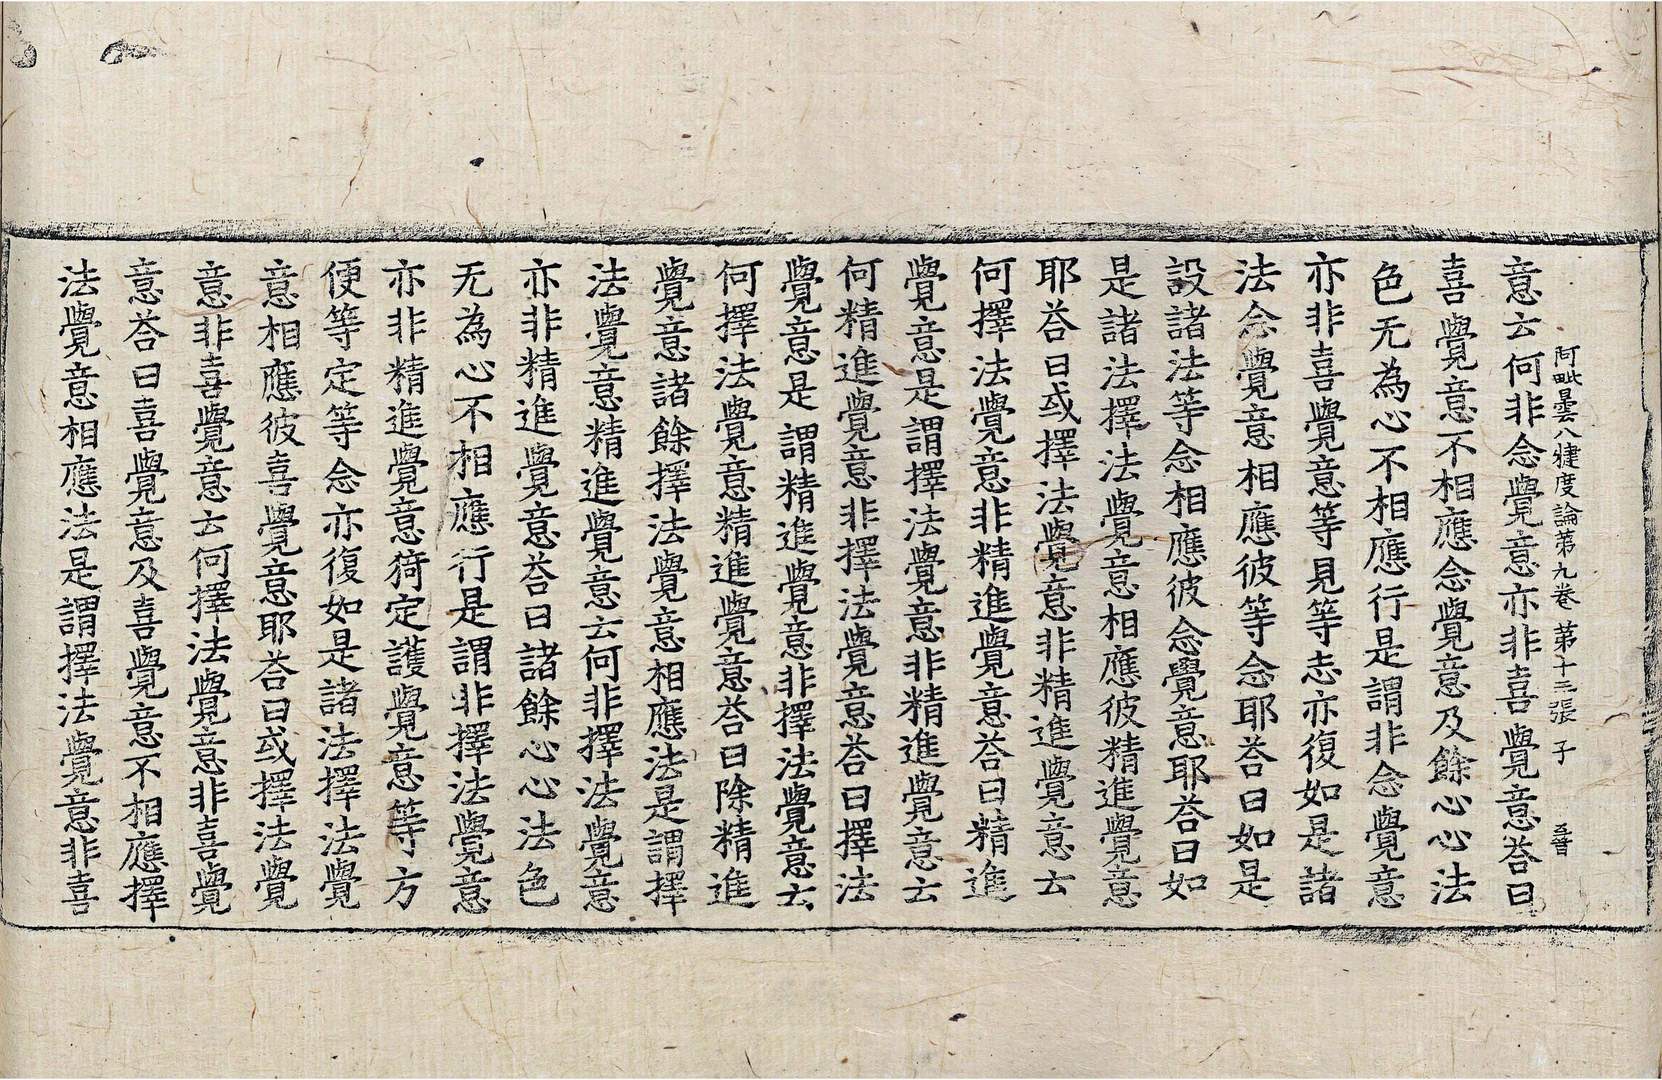 阿毗曇八犍度論第九卷 第十三張 子
意云何非念覺意亦非喜覺意荅曰
喜覺意不相應念覺意及餘心心法
色无為心不相應行是謂非念覺意
亦非喜覺意等見等志亦復如是諸
法念覺意相應彼等念耶荅曰如是
設諸法等念相應彼念覺意耶荅曰如
是諸法擇法覺意相應彼精進覺意
耶荅曰或擇法覺意非精進覺意云
何擇法覺意非精進覺意荅曰精進
覺意是謂擇法覺意非精進覺意云
何精進覺意非擇法覺意荅曰擇法
覺意是謂精進覺意非擇法覺意云
何擇法覺意精進覺意荅曰除精進
覺意諸餘擇法覺意相應法是謂擇
法覺意精進覺意云何非擇法覺意
亦非精進覺意荅曰諸餘心心法色
无為心不相應行是謂非擇法覺意
亦非精進覺意猗定護覺意等方
便等定等念亦復如是諸法擇法覺
意相應彼喜覺意耶荅曰或擇法覺
意非喜覺意云何擇法覺意非喜覺
意荅曰喜覺意及喜覺意不相應擇
法覺意相應法是謂擇法覺意非喜